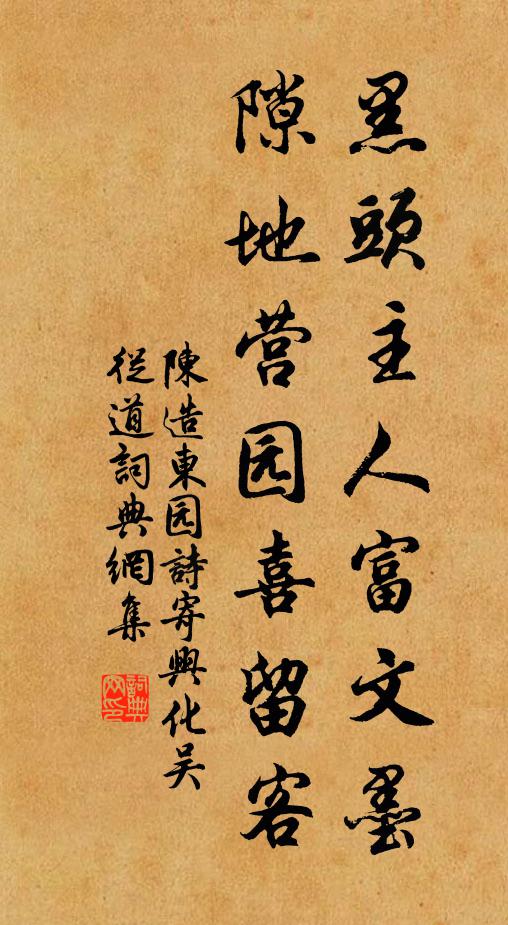 黑頭主人富文墨
隙地営园喜留客
陳造東园詩寄興化吴
從道詞典網集
詞典網印